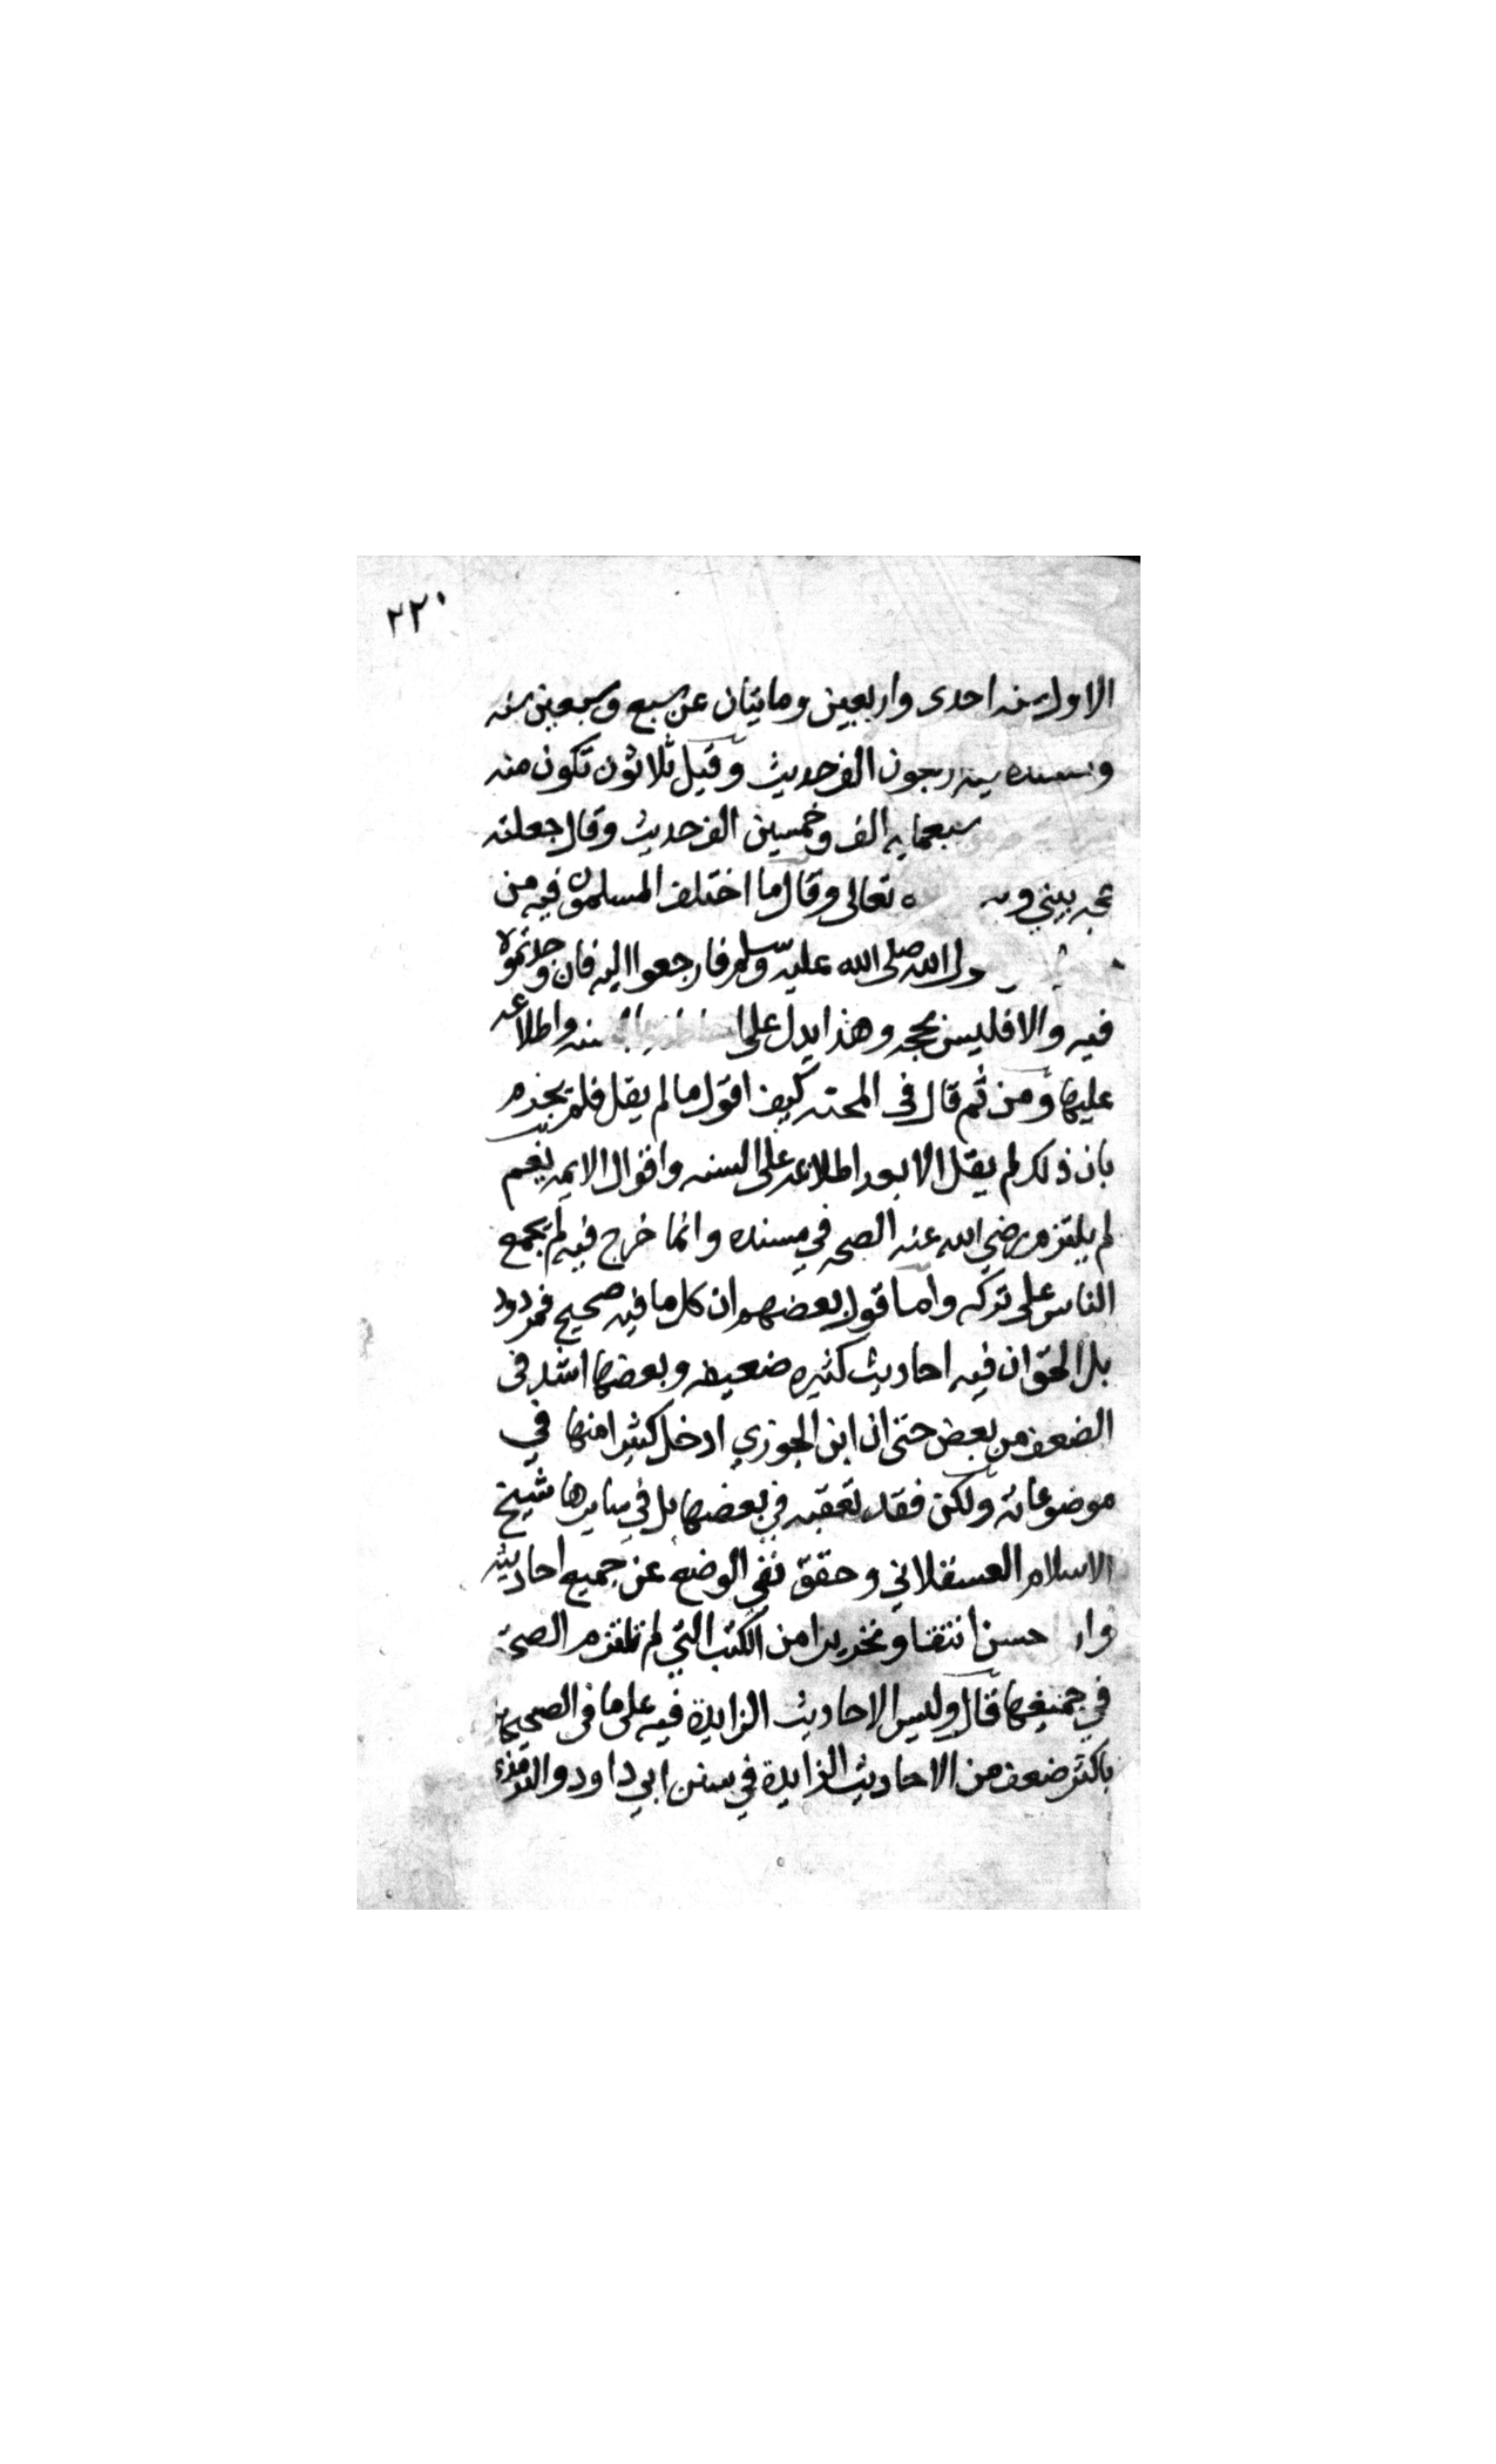 ٢٢٠
الاول سنه احدى واربعين ومايتان عن سبع وسبعين سنه
ومسنده فيه اربعون الف حديث وقيل ثلاثون تكون منه
سبعمايه الف وخمسين الف حديث وقال جعلته
حجه بيني وبين تعالى وقال ما اختلف المسلمون فيه من
رسول الله صلى الله عليه وسلم فارجعوا اليه فان وجدتموه
فيه والا فليس بحجه وهذا يدل على واطلاعه
عليها ومن ثم قال في المحنه كيف اقول ما لم يقل فلم يجزم
بان ذلك لم يقل الا بعد اطلاعه على السنه واقوال الايمه نعم
لم يلتزم رضي الله عنه الصحه في مسنده وانما خرج فيه لم يجمع
الناس على تركه واما قول بعضهم ان كل ما فيه صحيح فمردود
بل الحق ان فيه احاديث كثيره ضعيفه وبعضها اشد في
الضعف من بعض حتى ان ابن الجوزي ادخل كثيرا منها في
موضوعاته ولكن فقد تعقبه في بعضها بل في سايرها شيخ
الاسلام العسقلاني وحقق نفي الوضع عن جميع احاديثه
حسن انتقا وتحريرا من الكتب التي لم تلتزم الصحة
في جميعها قال وليس الاحاديث الزايدة فيه على ما في الصحيحين
باكثر ضعف من الاحاديث الزايدة في سنن ابي داود والترمذي